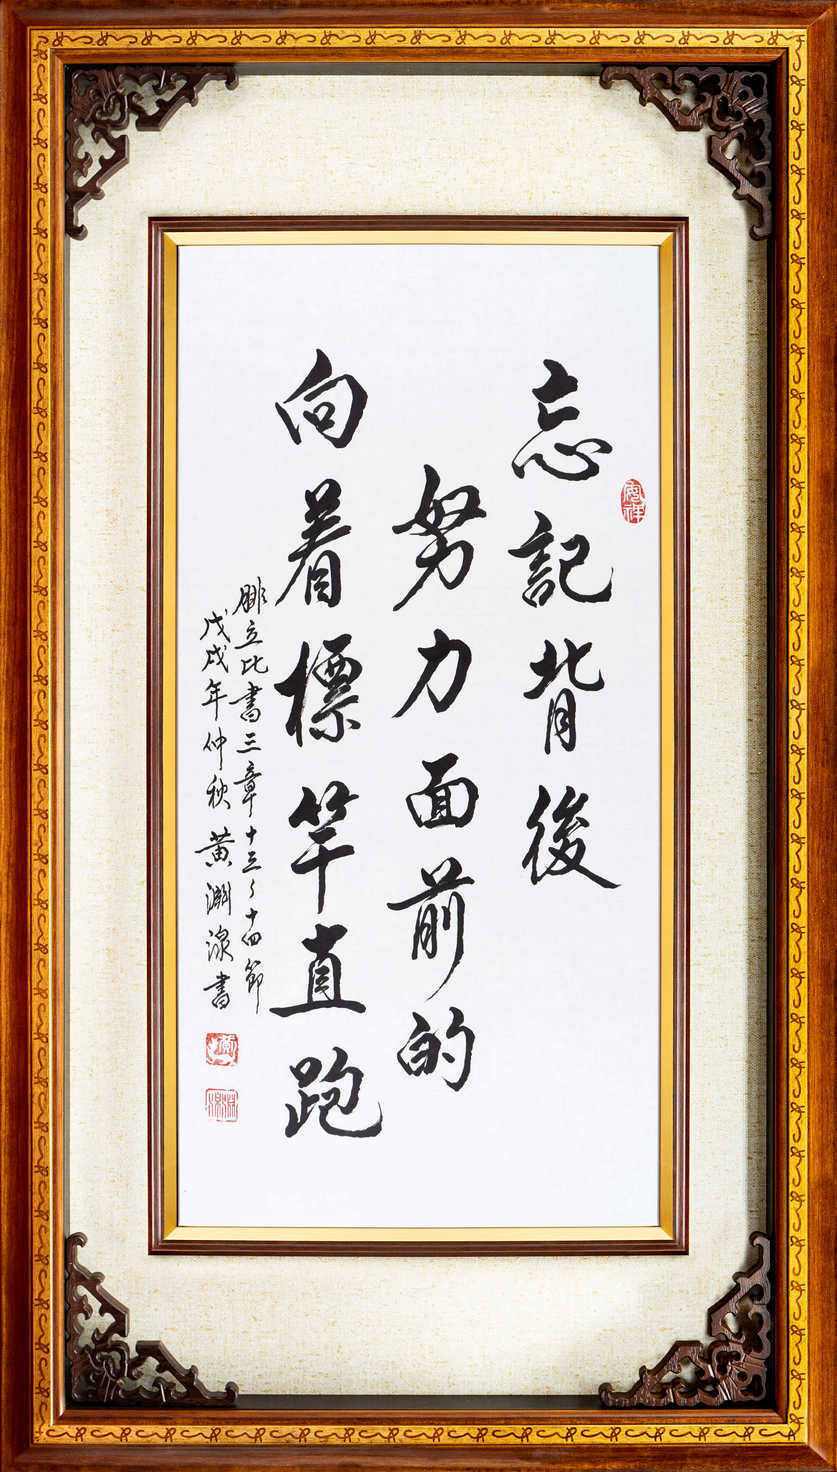 忘記背後
努力面前的
向着標竿直跑
腓立比書三章十三~十四節
戊戌年仲秋黃淵淙書